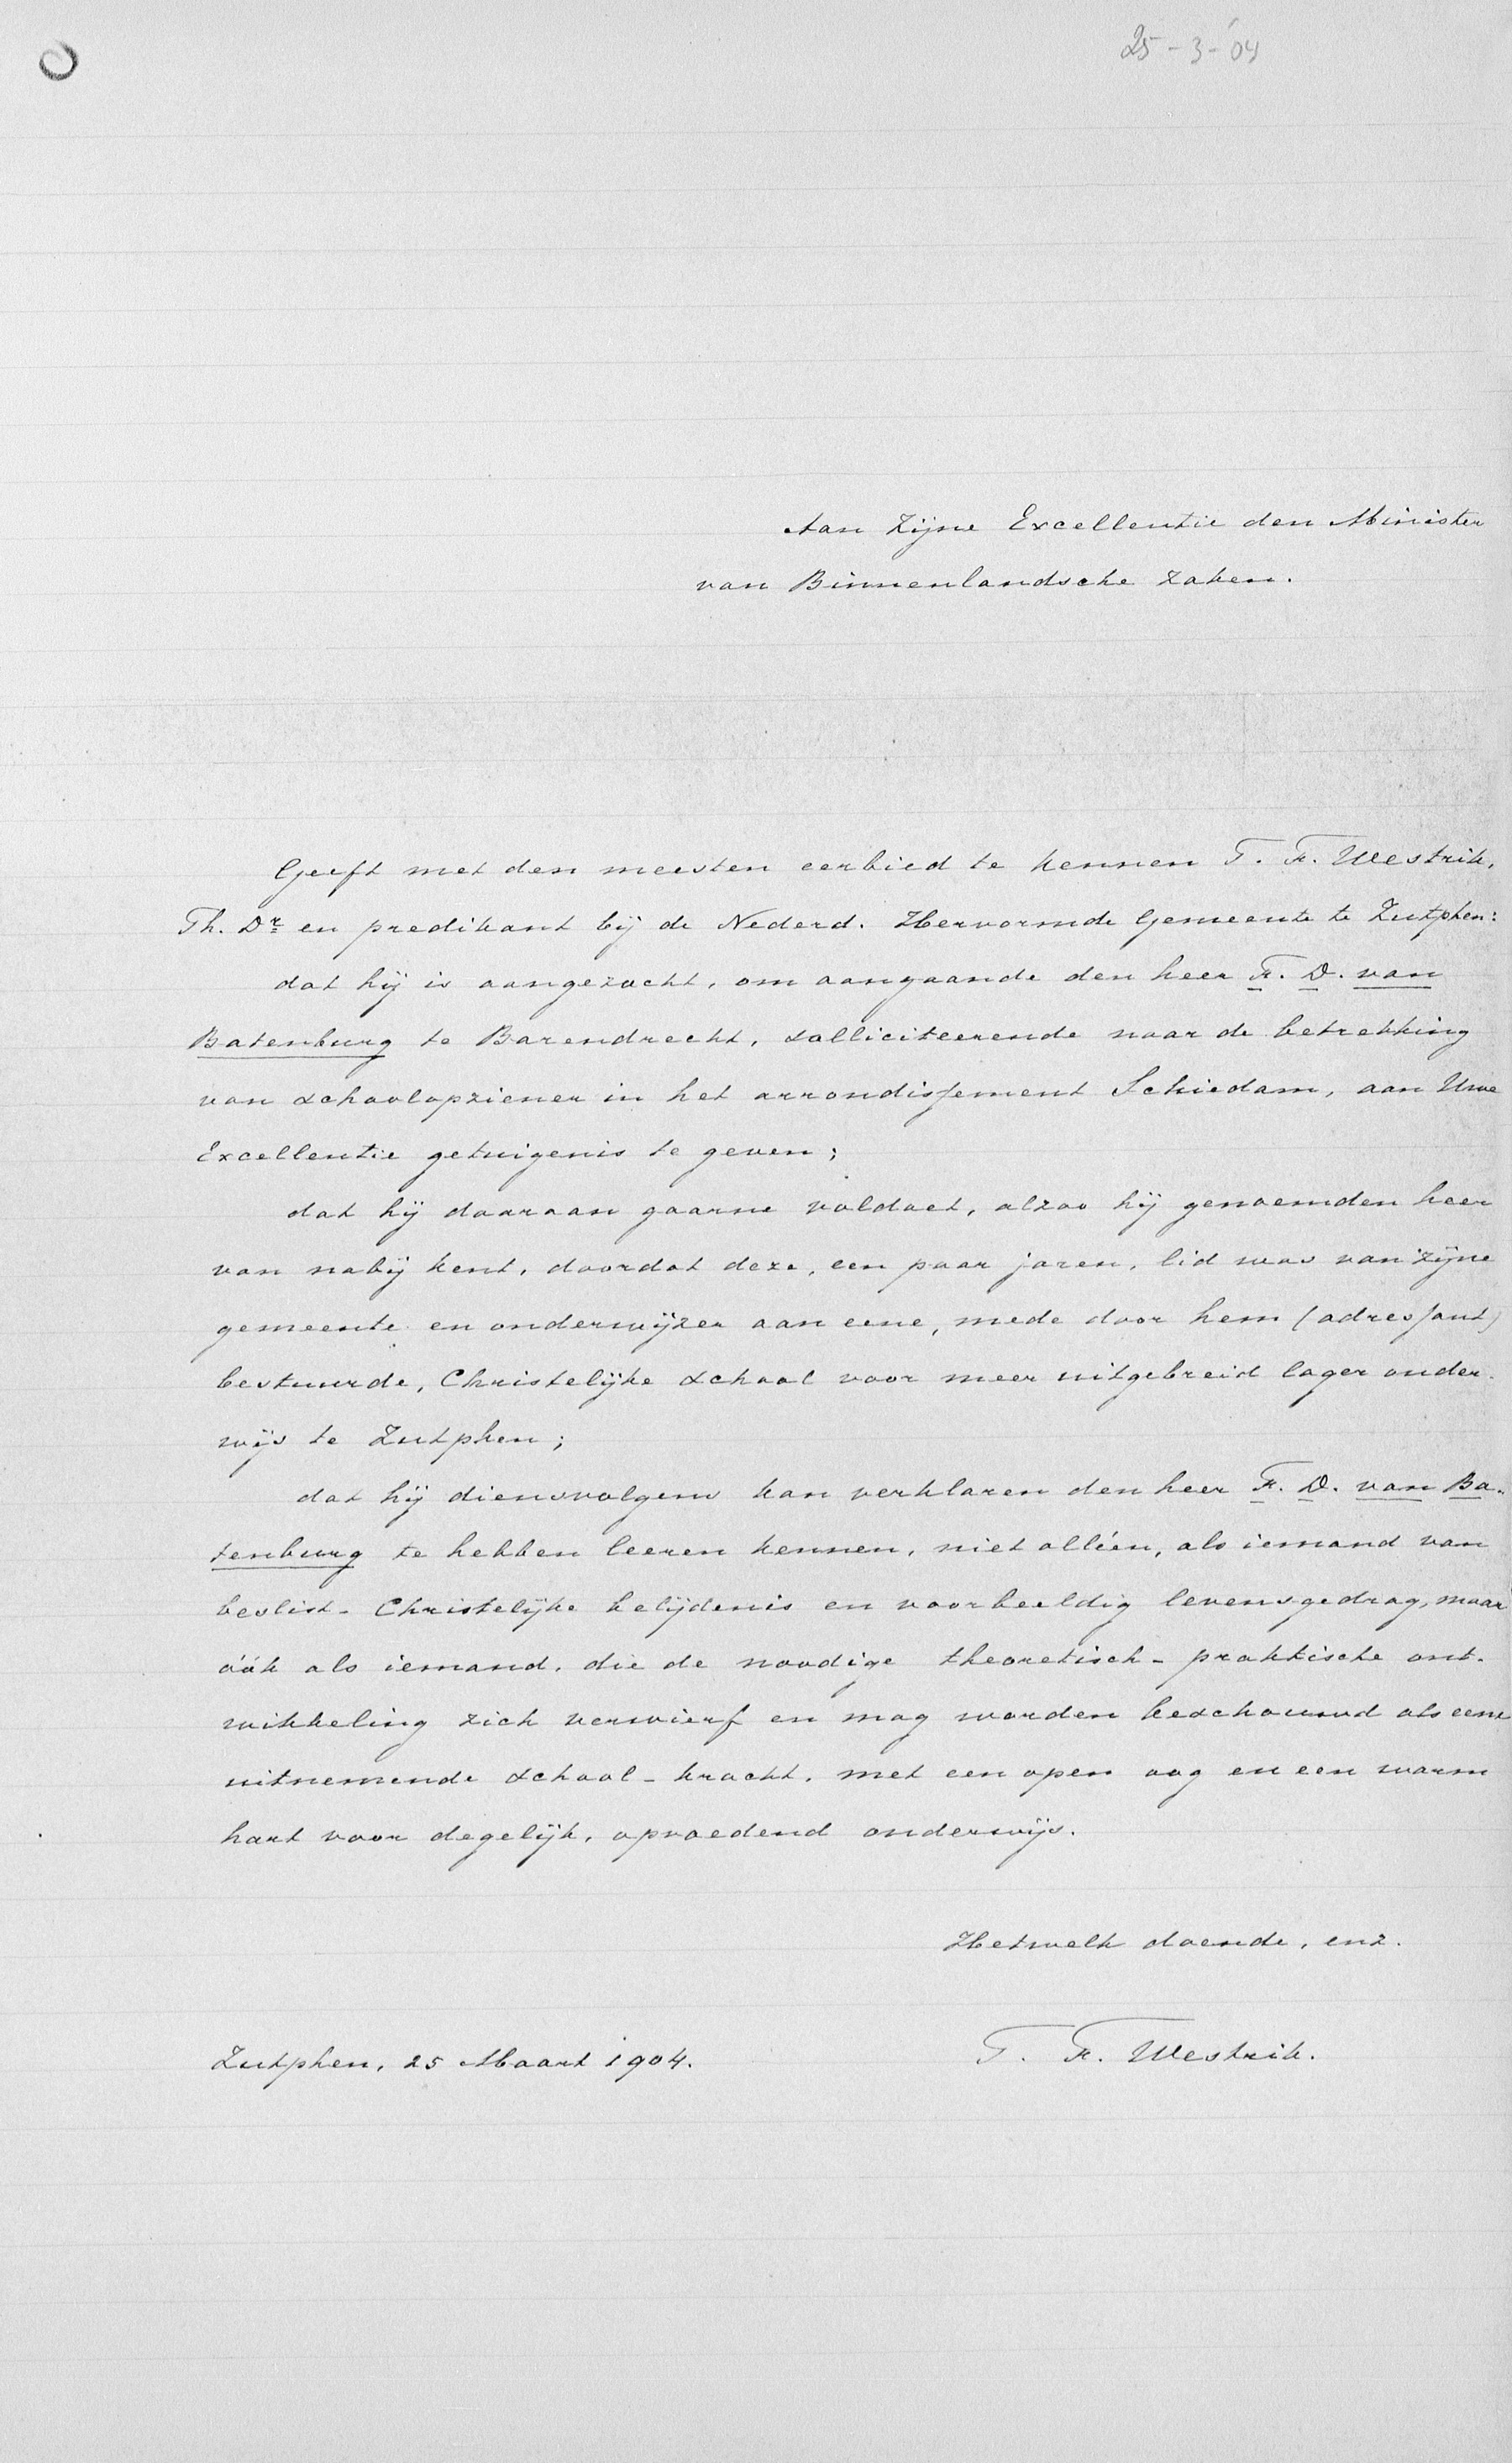 25-3-'04
Aan Zijne Excellentie den Minister
van Binnenlandsche Zaken.
Geeft met den meesten eerbied te kennen T. F. Westrik,
Th. Dr en predikant bij de Nederd. Hervormde Gemeente te Zutphen:
dat hij is aangezocht, om aangaande den heer F. D. van
Batenburg te Barendrecht, solliciteerende naar de betrekking
van schoolopziener in het arrondissement Schiedam, aan Uwe
Excellentie getuigenis te geven;
dat hij daaraan gaarne voldoet, alzoo hij genoemden heer
van nabij kent, doordat deze, een paar jaren, lid was van zijne
gemeente en onderwijzer aan eene, mede door hem (adressant)
bestuurde, Christelijke school voor meer uitgebreid lager onder-
wijs te Zutphen;
dat hij diensvolgens kan verklaren den heer F. D. van Ba-
tenburg te hebben leeren kennen, niet alléén, als iemand van
beslist-Christelijke belijdenis en voorbeeldig levensgedrag, maar
óók als iemand, die de noodige theoretisch-praktische ont-
wikkeling zich verwierf en mag worden beschouwd als eene
uitnemende school-kracht, met een open oog en een warm
hart voor degelijk, opvoedend onderwijs.
Hetwelk doende, enz.
T. F. Westrik.
Zutphen, 25 Maart 1904.